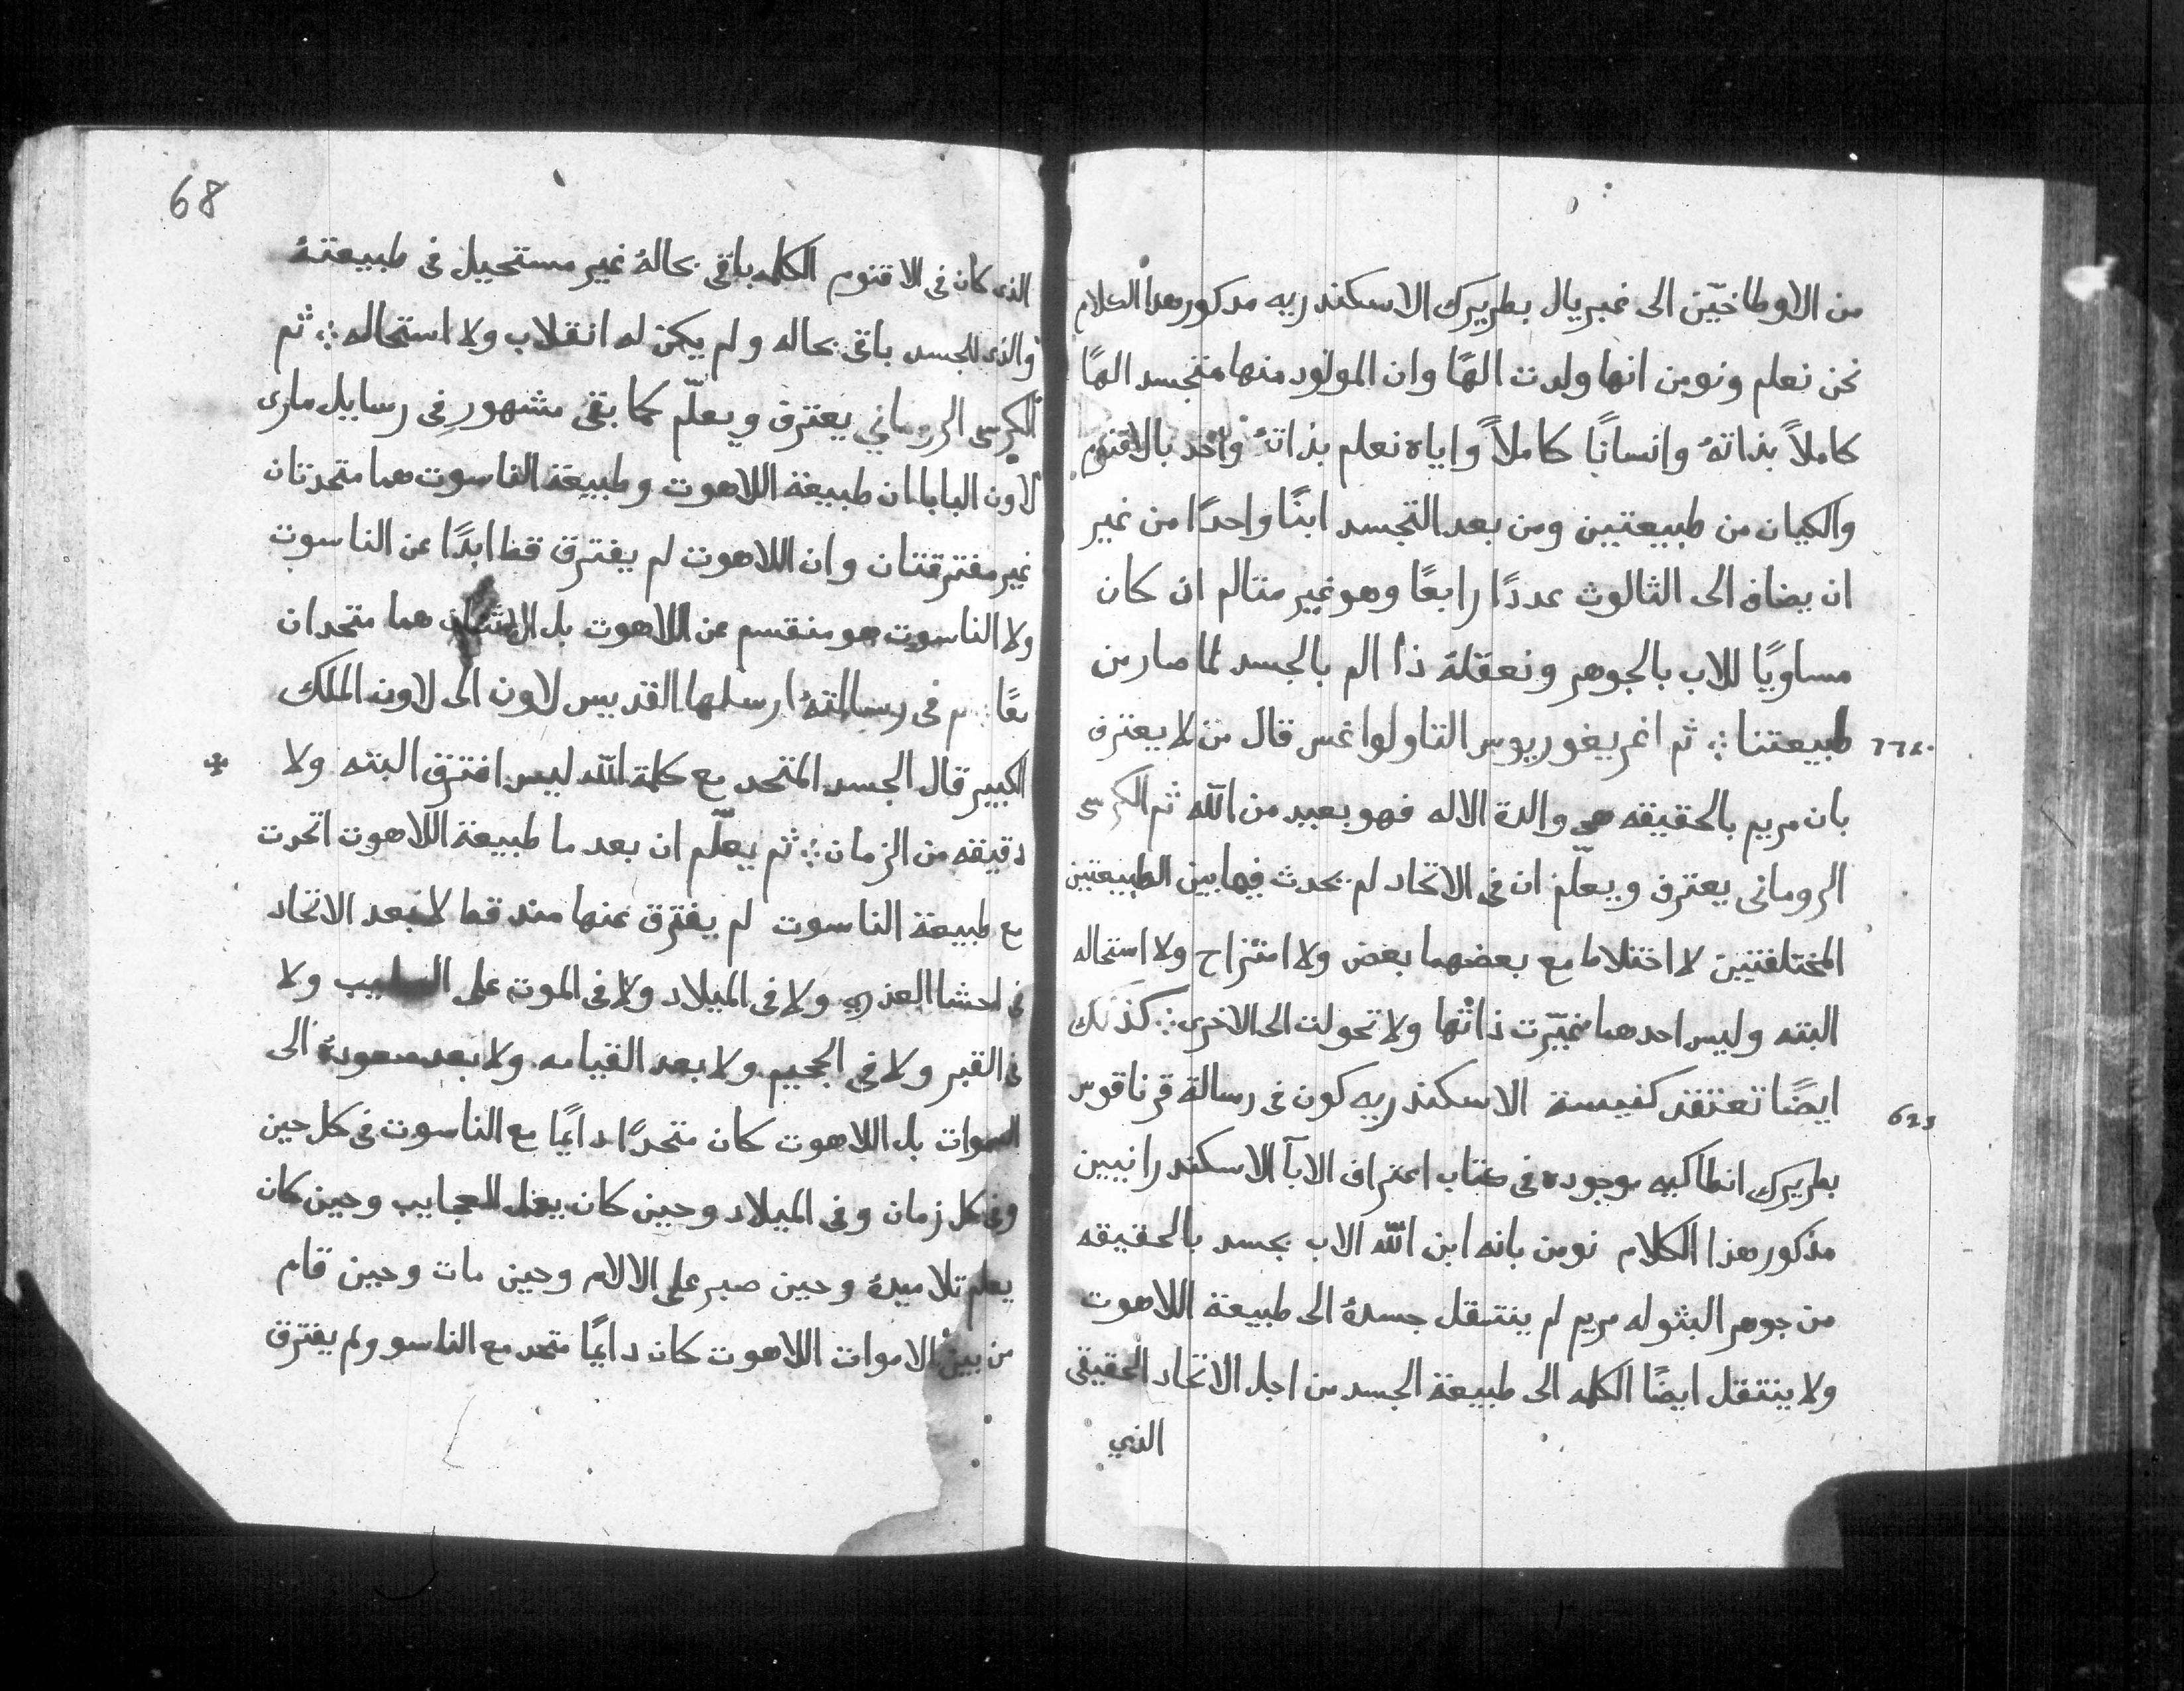 من الاوطاخيّن الى غبريال بطريرك الاسكندريه مدكور هدا الكلام
نحن نعلم ونومن انها ولدت الهًا وان المولود منها متجسد الهًا
كاملاً بذاتهُ وانسانًا كاملاً واياه نعلم بذاتهُ واحد بالاقنوم
والكيان من طبيعتين ومن بعد التجسد ابنًا واحدًا من غير
ان يضاف الى الثالوث عددًا رابعًا وهو غير متالم ان كان
مساويًا للاب بالجوهر ونعقلهُ ذا الم بالجسد لما صار من
طبيعتنا ⁘ ثم اغريغوريوس التاولوغس قال من لا يعترف
بان مريم بالحقيقه هي والدة الاله فهو بعيد من الله ثم الكرسى
الرومانى يعترف ويعلّم ان فى الاتحاد لم يحدث فيها بين الطبيعتين
المختلفتين لا اختلاط مع بعضهما بعض ولا امتزاج ولا استحاله
البته وليس احدهما تغيّرت ذاتها ولا تحولت الى الاخرى ⁘ كذلك
ايضًا تعتقد كنيسة الاسكندريه كون فى رسالة قرناقوس
623
بطريرك انطاكيه موجوده فى كتاب اعتراف الابآ الاسكندرانيين
مذكور هذا الكلام نومن بانه ابن الله الاب تجسد بالحقيقه
من جوهر البتوله مريم لم ينتقل جسدهُ الى طبيعة اللاهوت
ولا ينتقل ايضًا الكله الى طبيعة الجسد من اجل الاتحاد الحقيقى
الذي
68
الذى كان فى الاقنوم الكله باقى بحالهُ غير مستحيل فى طبيعتهُ
والذى للجسد باقى بحاله ولم يكن له انقلاب ولا استحاله ⁘ ثم
الكرسى الروماني يعترف ويعلّم كما بقى مشهور فى رسايل مارى
لاون البابا ان طبيعة اللاهوت وطبيعة الناسوت هما متحدتان
غير مفترقتان وان اللاهوت لم يفترق قط ابدًا عن الناسوت
ولا الناسوت هو منقسم عن اللاهوت بل الاثنان هما متحدان
معًا ثم فى رسالتهُ ارسلها القديس لاون الى لاون الملك
الكبير قال الجسد المتحد مع كلمة الله ليس افترق البته ولا
دقيقه من الزمان ⁘ ثم يعلّم ان بعد ما طبيعة اللاهوت اتحدت
مع طبيعة الناسوت لم يفترق عنها مند قط لا بعد الاتحاد
فى احشا العذري ولا فى الميلاد ولا فى الموت على الصليب ولا
فى القبر ولا فى الجحيم ولا بعد القيامه ولا بعد صعودهُ الى
السموات بل اللاهوت كان متحدًا دايمًا مع الناسوت فى كل حين
وفى كل زمان وفى الميلاد وحين كان يفعل العجايب وحين كان
يعلم تلاميدهُ وحين صبر على الالام وحين مات وحين قام
من بين الاموات اللاهوت كان دايمًا متحد مع الناسو ولم يفترق